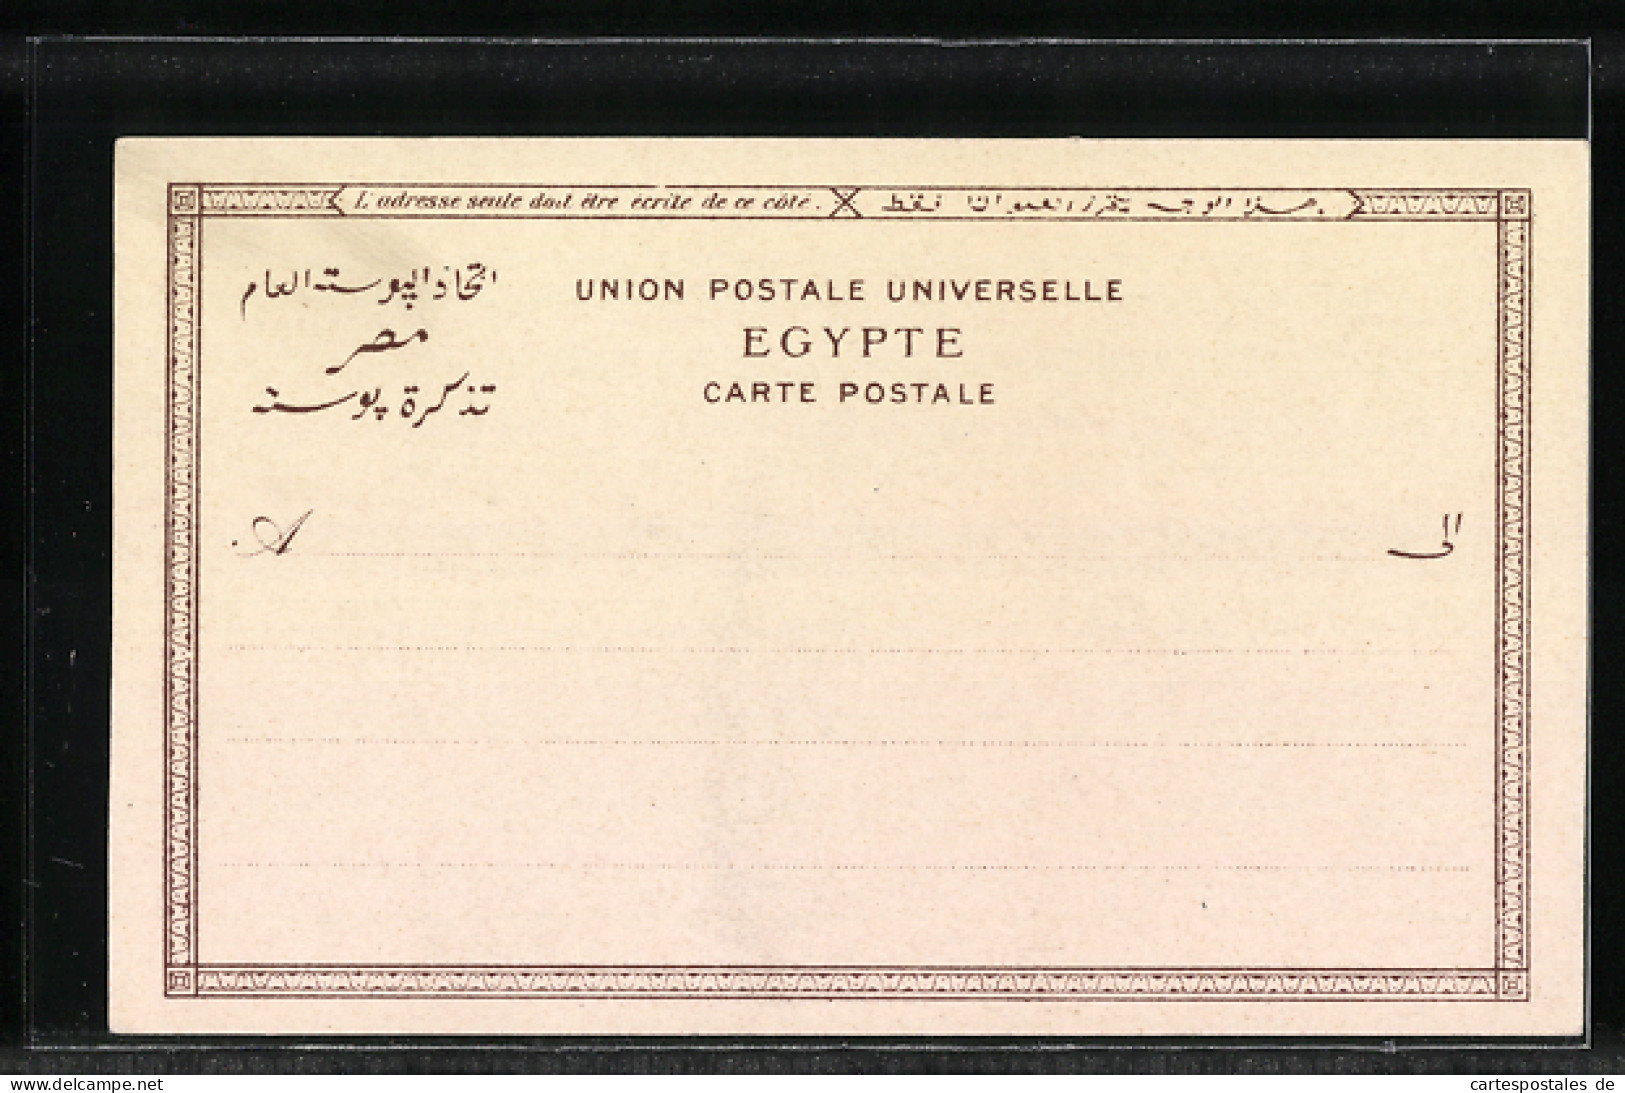 L'adresse seule doit être écrite de ce côté.
هذا الوجه يحرر العنوان فقط.
اتحاد الپوسته العام
UNION POSTALE UNIVERSELLE
مصر
EGYPTE
تذكرة پوسته
CARTE POSTALE
A
الى
delcampe.net
cartespostales de